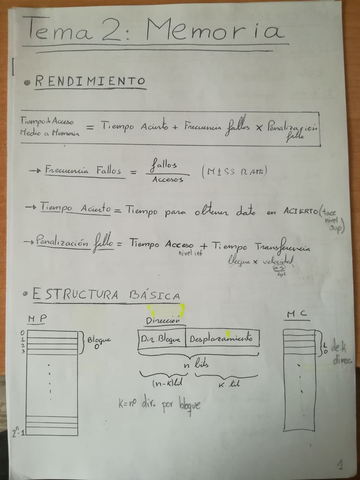 Tema 2: Memoria
• RENDIMIENTO
Tiempo de Acceso Medio a Memoria = Tiempo Acierto + Frecuencia fallos x Penalización fallo
→ Frecuencia Fallos = fallos / Accesos (MISS RATE)
→ Tiempo Acierto = Tiempo para obtener dato en ACIERTO (
nivel sup)
→ Penalización fallo = Tiempo Acceso + Tiempo Transferencia
nivel inf
bloque x velocidad
• ESTRUCTURA BÁSICA
MP
Dirección
MC
0
1
2
3
Bloque 0
Dir. Bloque
Desplazamiento
n bits
(n-k) bit
k bit
k = nº dir. por bloque
de k
direcc
2ⁿ-1
1